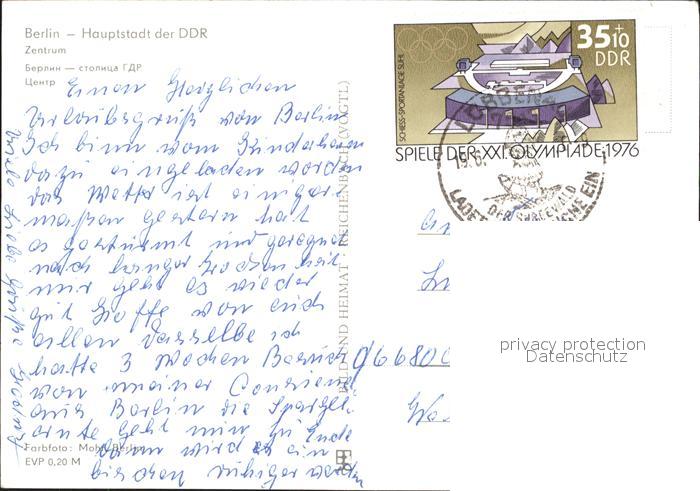 Berlin – Hauptstadt der DDR
Zentrum
Берлин — столица ГДР
Центр
Einen Herzlichen
Urlaubsgruß von Berlin
Ich binn vom
dazu eingeladen worden
das Wetter ist einiger
maßen gestern hat
es gestürmt und geregnet
nach langer Trockenheit
mir geht es wieder
gut hoffe von euch
allen dasselbe ich
hatte 3 Wochen Besuch
von meiner
aus Berlin die Spargel
ernte geht nun zu Ende
dann wird es ein
bischen ruhiger werden
Viele Liebe Grüße
Farbfoto:
EVP 0,20 M
BILD UND HEIMAT · REICHENBACH (VOGTL)
SCHIESS-SPORTANLAGE SUHL
35+10
DDR
SPIELE DER XXI. OLYMPIADE 1976
DER SPREEWALD
LADET
EIN
An
privacy protection
Datenschutz